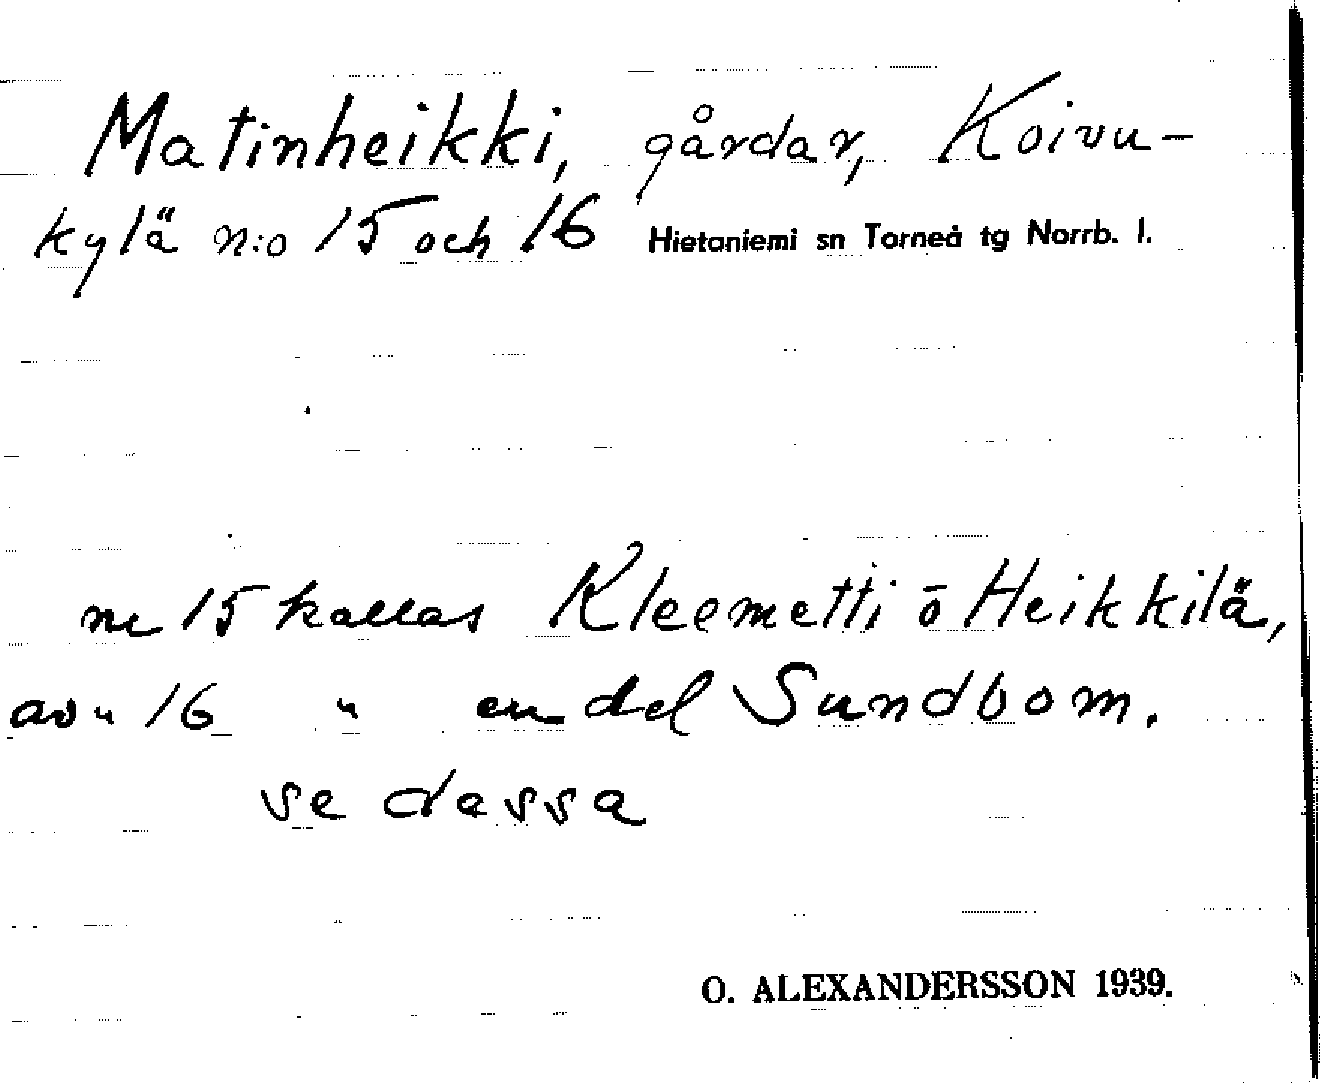 Matinheikki, gårdar, Koivu-
kylä n:o 15 och 16 Hietaniemi sn Torneå tg Norrb. l.
nr 15 kallas Kleemetti o Heikkilä,
av " 16 " en del Sundbom.
se dessa
O. ALEXANDERSSON 1939.